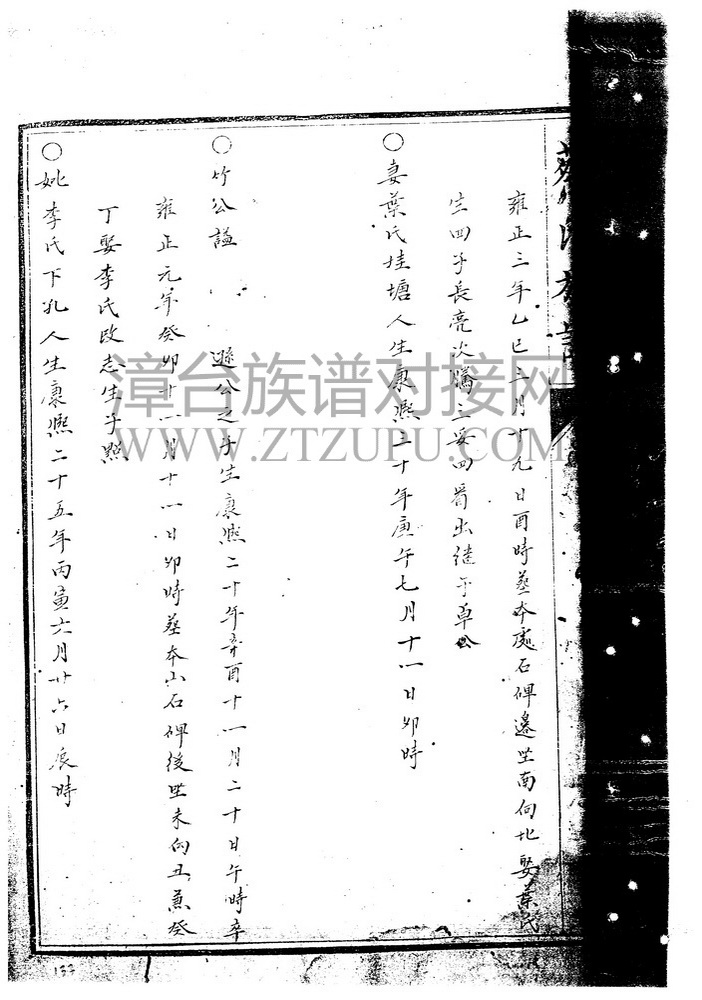 雍正三年乙巳二月十九日酉時葬本處石碑邊坐南向北娶葉氏
生四子長亮次騰三妥四 出繼于卓公
○妻葉氏 塘人生康熙三十年庚午七月十一日卯時
○竹公謚 遜公之子生康熙二十年辛酉十一月二十日午時卒
雍正元年癸卯十一月十一日卯時葬本山石碑後坐未向丑兼癸
丁娶李氏改志生子點
○妣李氏下孔人生康熙二十五年丙寅六月廿六日辰時
漳台族谱对接网
WWW.ZTZUPU.COM
133